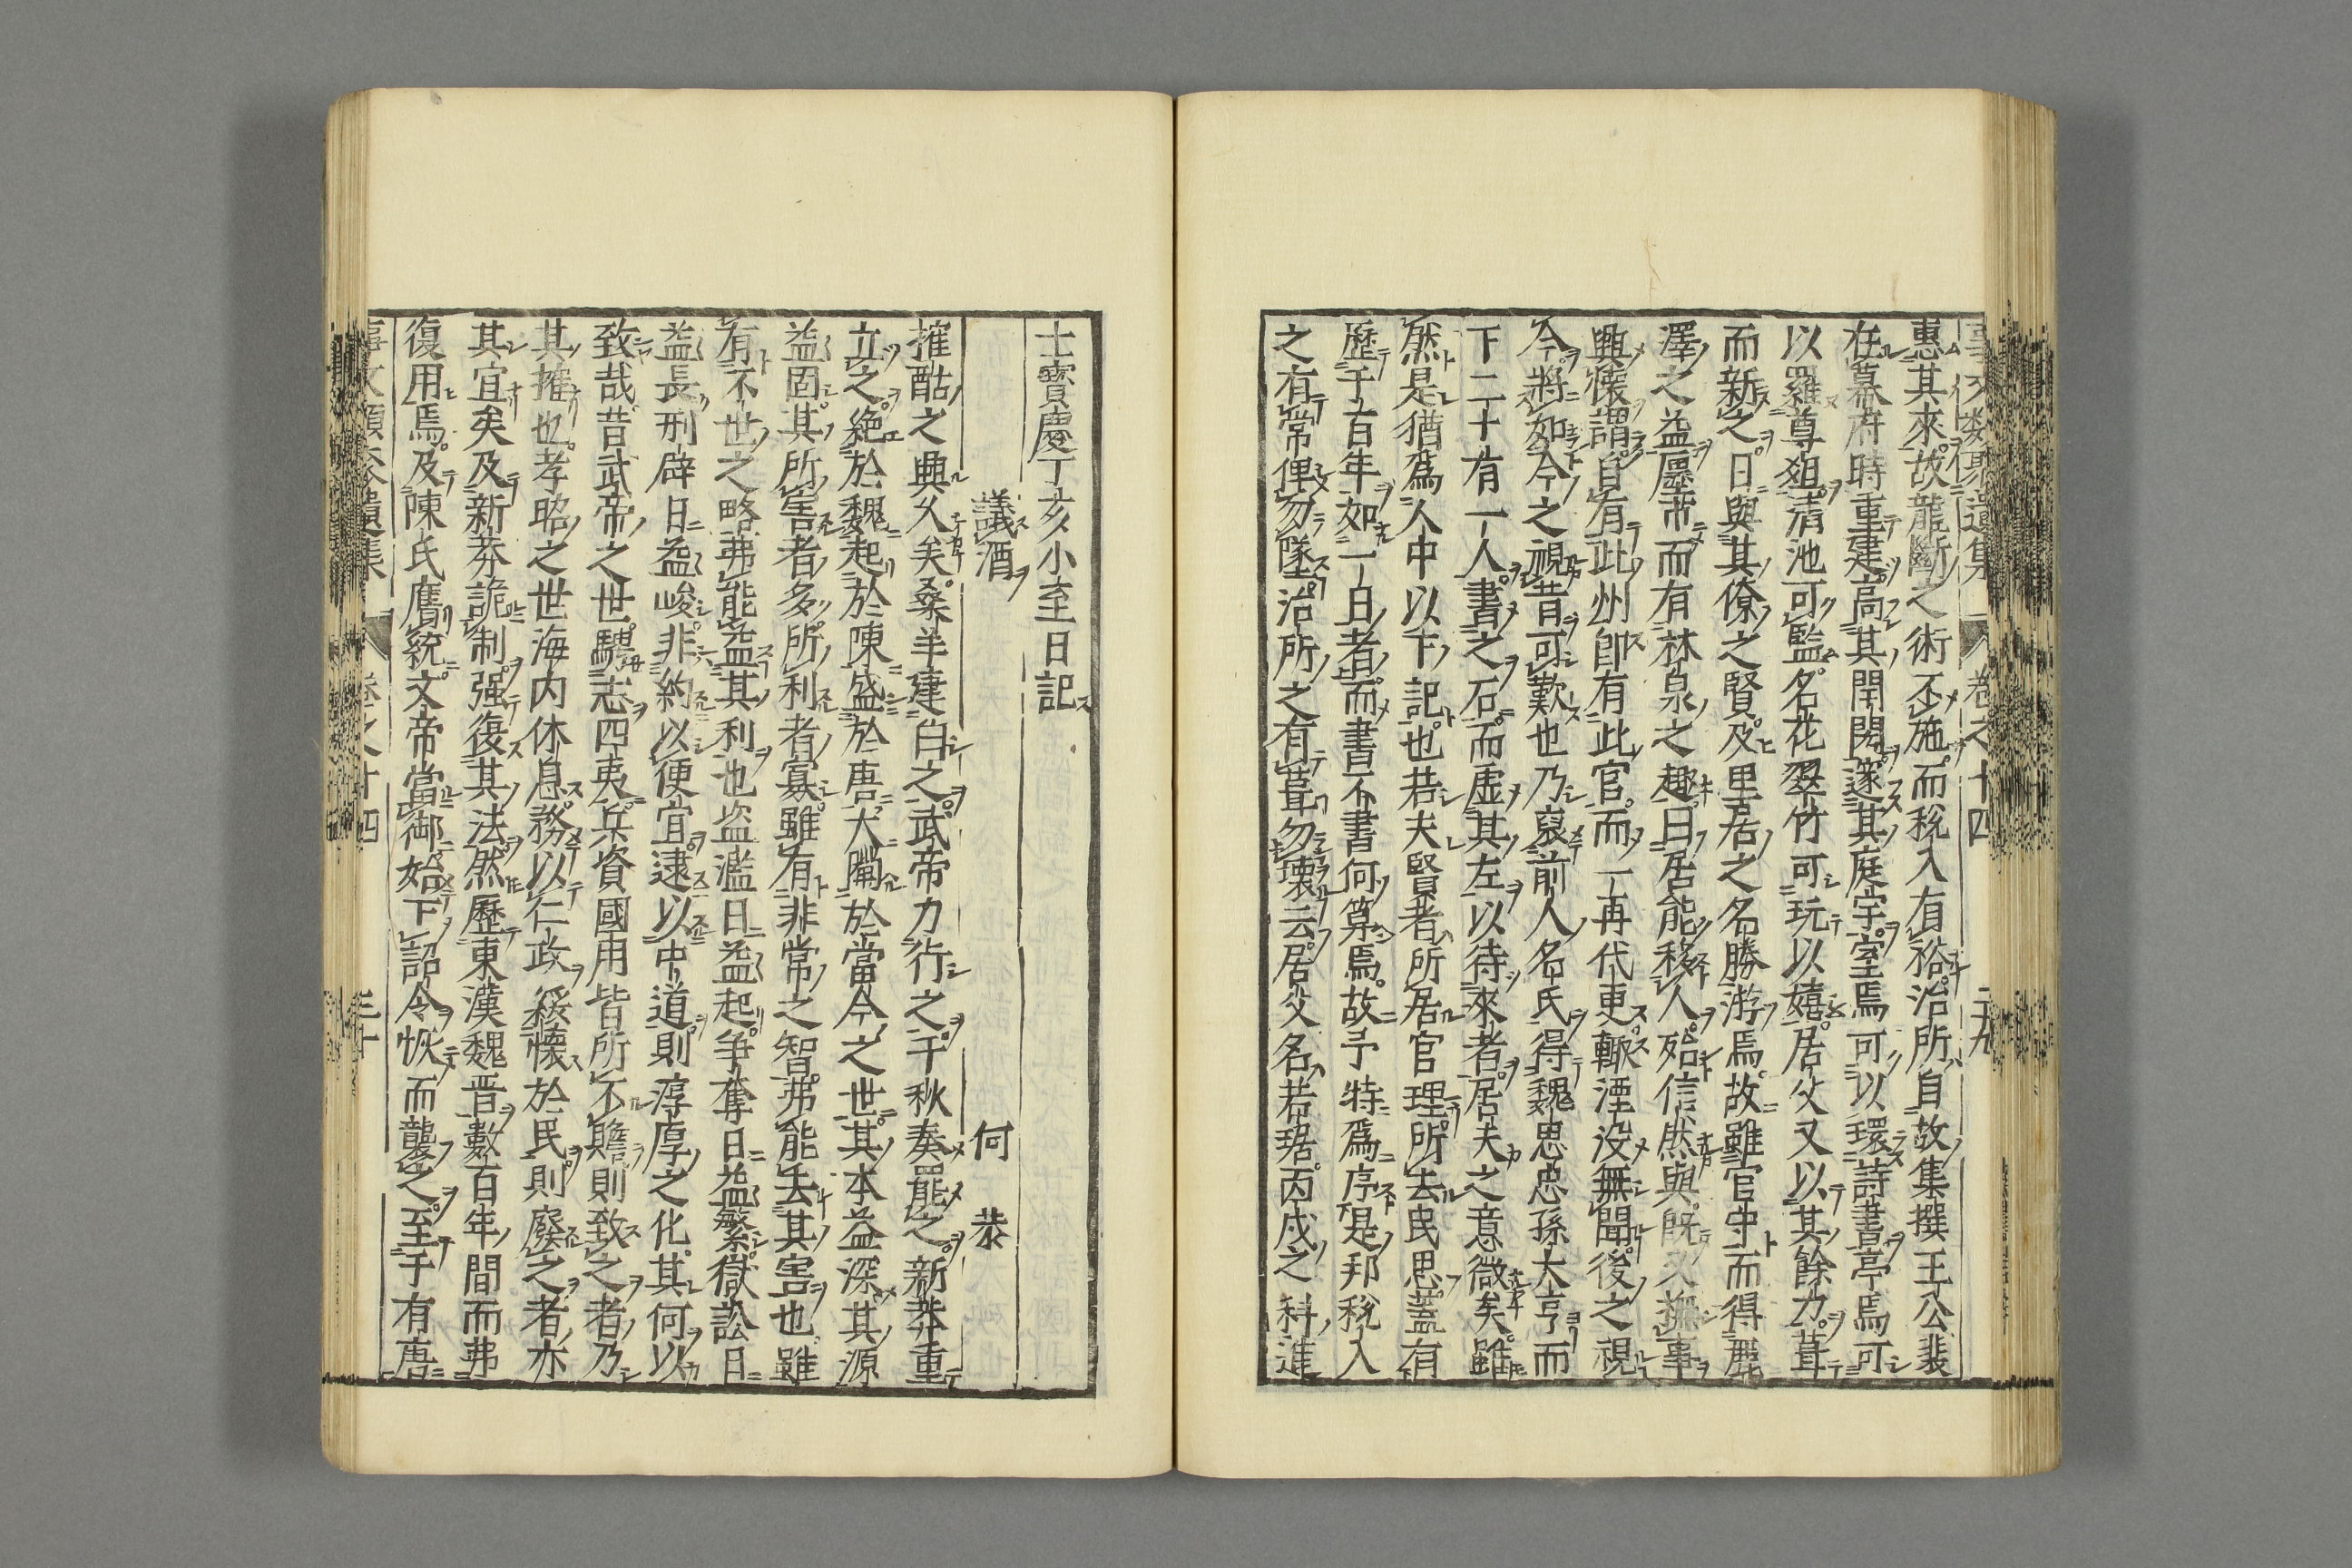 事文類聚遺集 卷之十四 二十九
惠其來故龍斷之術不施而稅入有裕治所自故集撰王公裴
在幕府時重建高其閈閎邃其庭宇室焉可以環詩書亭焉可
以羅尊爼清池可監名花翠竹可玩以嬉居父又以其餘力葺
而新之日與其僚之賢及里居之名勝游焉故雖官守而得麗
澤之益廛市而有林泉之趣曰居能移人殆信然與既又撫事
興懷謂自有此州卽有此官而一再代更輒湮沒無聞後之視
今將如今之視昔可歎也乃裒前人名氏得魏思忠孫大亨而
下二十有一人書之石而虛其左以待來者居夫之意微矣雖
然是猶爲人中以下記也若夫賢者所居官理所去民思蓋有
歷千百年如一日者而書不書何算焉故予特爲序是邦稅入
之有常俾勿墜治所之有葺勿壞云居父名若琚丙戌之科進
士寶慶丁亥小至日記
議酒 何 恭
搉酤之興久矣桑羊建白之武帝力行之千秋奏罷之新莽重
立之絶於魏起於陳盛於唐大闡於當今之世其本益深其源
益固其所害者多所利者寡雖有非常之智弗能去其害也雖
有不世之略弗能益其利也盗濫日益起爭奪日益繁獄訟日
益長刑辟日益峻非約以便宜逮以中道則淳厚之化其何以
致哉昔武帝之世騁志四夷兵資國用皆所不贍則致之者乃
其搉也孝昭之世海内休息務以仁政綏懷於民則廢之者亦
其宜矣及新莽詭制强復其法然歷東漢魏晋數百年間而弗
復用焉及陳氏膺統文帝當御始下詔令恢而襲之至于有唐
事文類聚遺集 卷之十四 三十